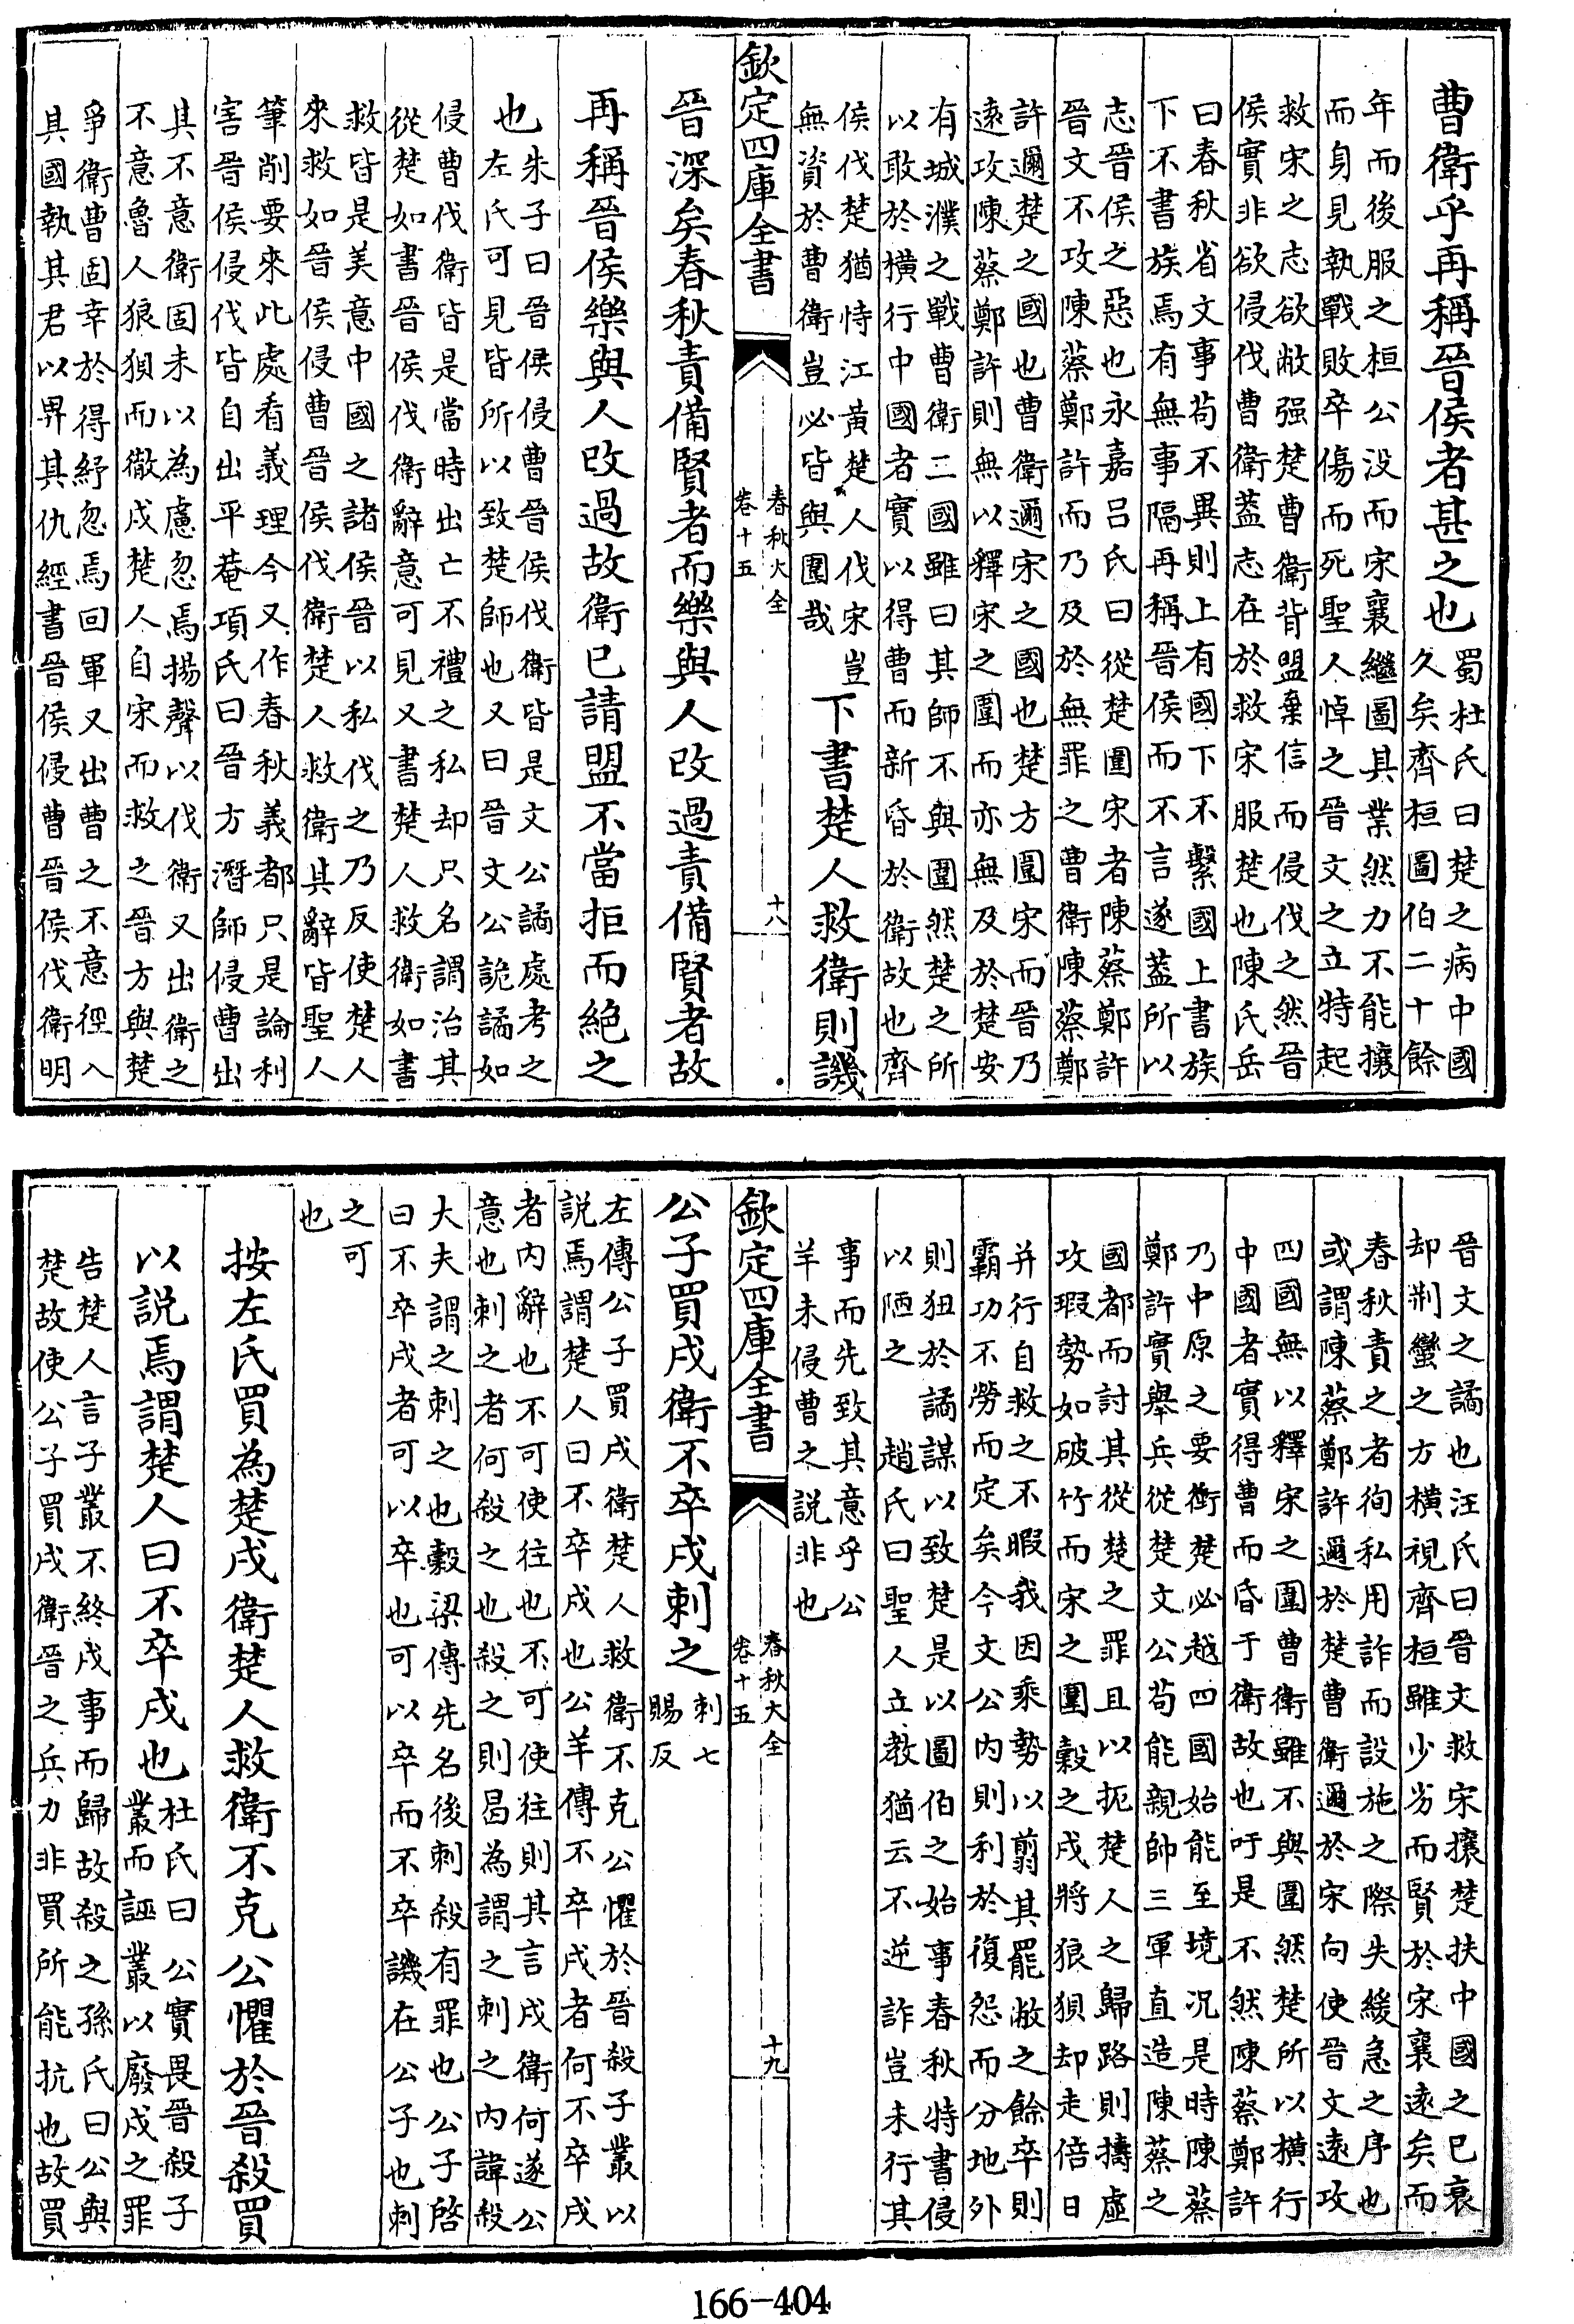 曹衛乎再稱晉侯者甚之也
蜀杜氏曰楚之病中國
久矣齊桓圖伯二十餘
年而後服之桓公没而宋襄繼圖其業然力不能攘
而身見執戰敗卒傷而死聖人悼之晉文之立特起
救宋之志欲敝强楚曹衛背盟棄信而侵伐之然晉
侯實非欲侵伐曹衛葢志在於救宋服楚也陳氏岳
曰春秋省文事茍不異則上有國下不繫國上書族
下不書族焉有無事隔再稱晉侯而不言遂葢所以
志晉侯之惡也永嘉吕氏曰從楚圍宋者陳蔡鄭許
晉文不攻陳蔡鄭許而乃及於無罪之曹衛陳蔡鄭
許邇楚之國也曹衛邇宋之國也楚方圍宋而晉乃
遠攻陳蔡鄭許則無以釋宋之圍而亦無及於楚安
有城濮之戰曹衛二國雖曰其師不與圍然楚之所
以敢於横行中國者實以得曹而新昏於衛故也齊
侯伐楚猶恃江黄楚人伐宋豈
無資於曹衛豈必皆與圍哉
下書楚人救衛則譏
欽定四庫全書
春秋大全
卷十五
十八
晉深矣春秋責備賢者而樂與人改過責備賢者故
再稱晉侯樂與人改過故衛已請盟不當拒而絶之
也
朱子曰晉侯侵曹晉侯伐衛皆是文公譎處考之
左氏可見皆所以致楚師也又曰晉文公詭譎如
侵曹伐衛皆是當時出亡不禮之私却只名謂治其
從楚如書晉侯伐衛辭意可見又書楚人救衛如書
救皆是美意中國之諸侯晉以私伐之乃反使楚人
來救如晉侯侵曹晉侯伐衛楚人救衛其辭皆聖人
筆削要來此處看義理今又作春秋義都只是論利
害晉侯侵伐皆自出平菴項氏曰晉方潛師侵曹出
其不意衛固未以為慮忽焉揚聲以伐衛又出衛之
不意魯人狼狽而徹戍楚人自宋而救之晉方與楚
爭衛曹固幸於得紓忽焉回軍又出曹之不意徑入
其國執其君以畀其仇經書晉侯侵曹晉侯伐衛明
晉文之譎也汪氏曰晉文救宋攘楚扶中國之已衰
却荆蠻之方横視齊桓雖少劣而賢於宋襄遠矣而
春秋責之者徇私用詐而設施之際失緩急之序也
或謂陳蔡鄭許邇於楚曹衛邇於宋向使晉文遠攻
四國無以釋宋之圍曹衛雖不與圍然楚所以横行
中國者實得曹而昏于衛故也吁是不然陳蔡鄭許
乃中原之要衝楚必越四國始能至境况是時陳蔡
鄭許實舉兵從楚文公茍能親帥三軍直造陳蔡之
國都而討其從楚之罪且以扼楚人之歸路則擣虚
攻瑕勢如破竹而宋之圍榖之戍將狼狽却走倍日
并行自救之不暇我因乘勢以翦其罷敝之餘卒則
霸功不勞而定矣今文公内則利於復怨而分地外
則狃於譎謀以致楚是以圖伯之始事春秋特書侵
以陋之　趙氏曰聖人立教猶云不逆詐豈未行其
事而先致其意乎公
羊未侵曹之説非也
欽定四庫全書
春秋大全
卷十五
十九
公子買戍衛不卒戍刺之
刺七
賜反
左傳公子買戍衛楚人救衛不克公懼於晉殺子叢以
説焉謂楚人曰不卒戍也公羊傳不卒戍者何不卒戍
者内辭也不可使往也不可使往則其言戍衛何遂公
意也刺之者何殺之也殺之則曷為謂之刺之内諱殺
大夫謂之刺之也榖梁傳先名後刺殺有罪也公子啓
曰不卒戍者可以卒也可以卒而不卒譏在公子也刺
之可
也
按左氏買為楚戍衛楚人救衛不克公懼於晉殺買
以説焉謂楚人曰不卒戍也
杜氏曰公實畏晉殺子
叢而誣叢以廢戍之罪
告楚人言子叢不終戍事而歸故殺之孫氏曰公與
楚故使公子買戍衛晉之兵力非買所能抗也故買
166-404